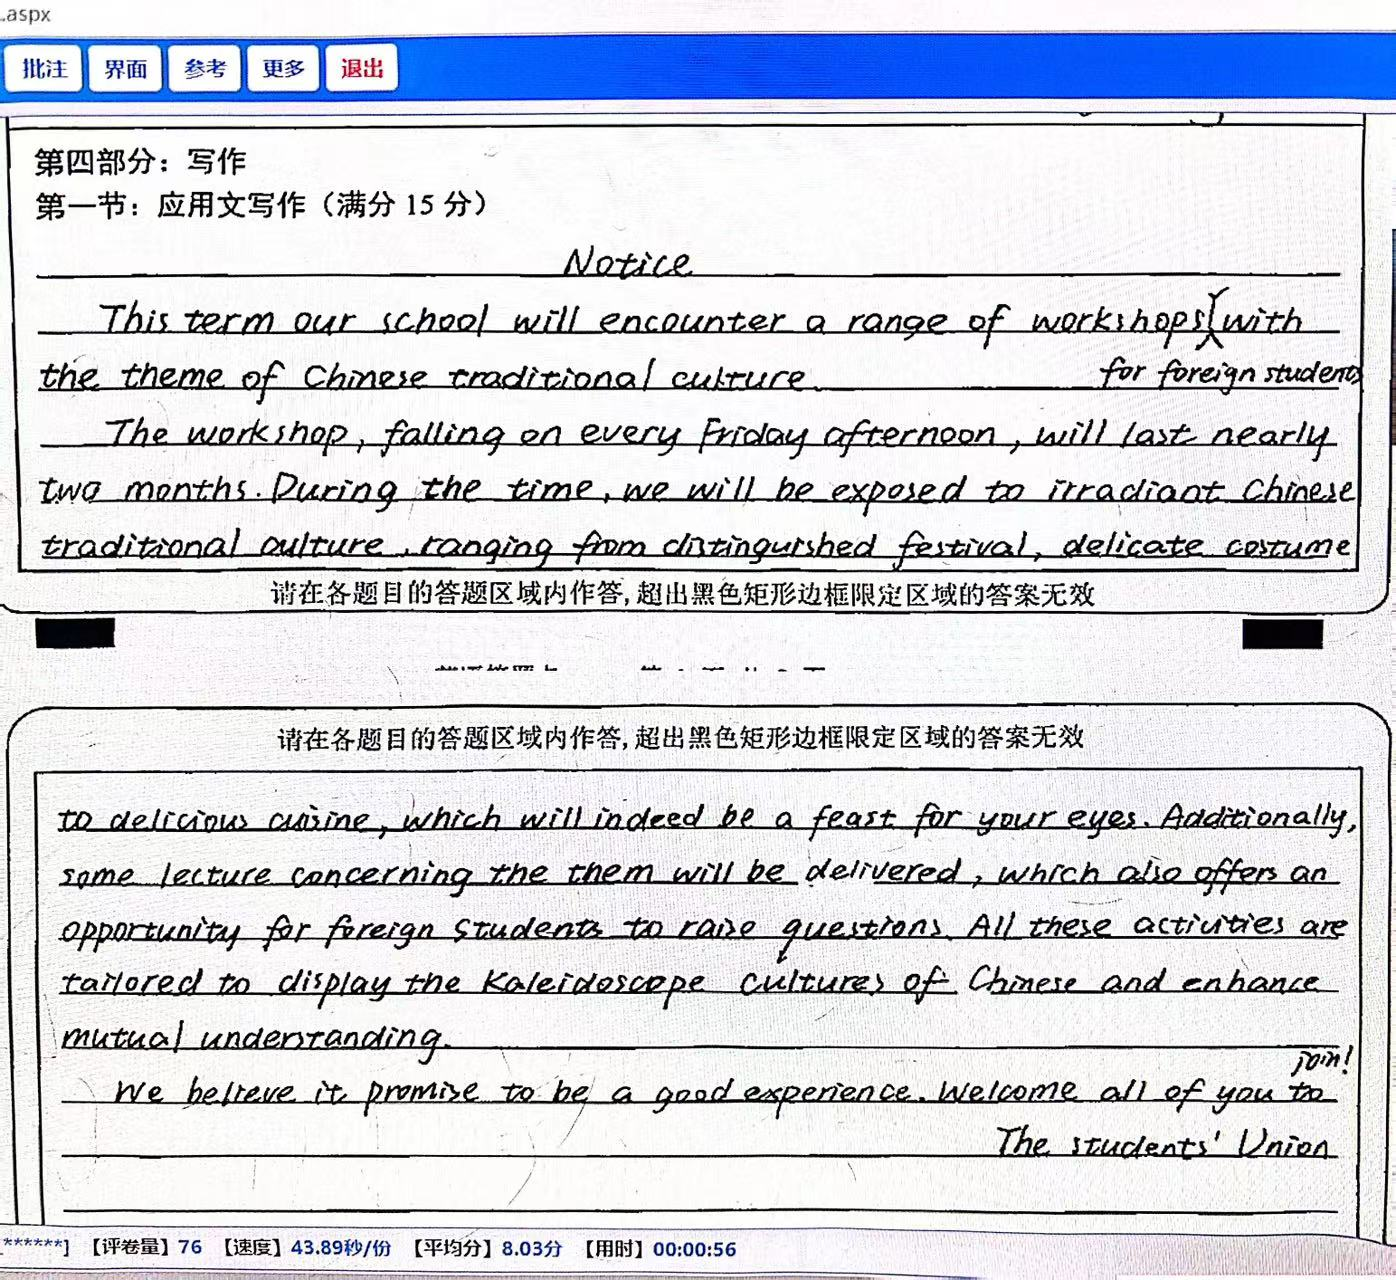 .aspx
批注 界面 参考 更多 退出
第四部分：写作
第一节：应用文写作（满分 15 分）
Notice
This term our school will encounter a range of workshops with
the theme of Chinese traditional culture. for foreign students
The workshop, falling on every Friday afternoon, will last nearly
two months. During the time, we will be exposed to irradiant Chinese
traditional culture, ranging from distinguished festival, delicate costume
请在各题目的答题区域内作答,超出黑色矩形边框限定区域的答案无效
请在各题目的答题区域内作答,超出黑色矩形边框限定区域的答案无效
to delicious cuisine, which will indeed be a feast for your eyes. Additionally,
some lecture concerning the them will be delivered, which also offers an
opportunity for foreign students to raise questions. All these activities are
tailored to display the kaleidoscope cultures of Chinese and enhance
mutual understanding.
join!
We believe it promise to be a good experience. Welcome all of you to
The students' Union
******] 【评卷量】76 【速度】43.89秒/份 【平均分】8.03分 【用时】00:00:56